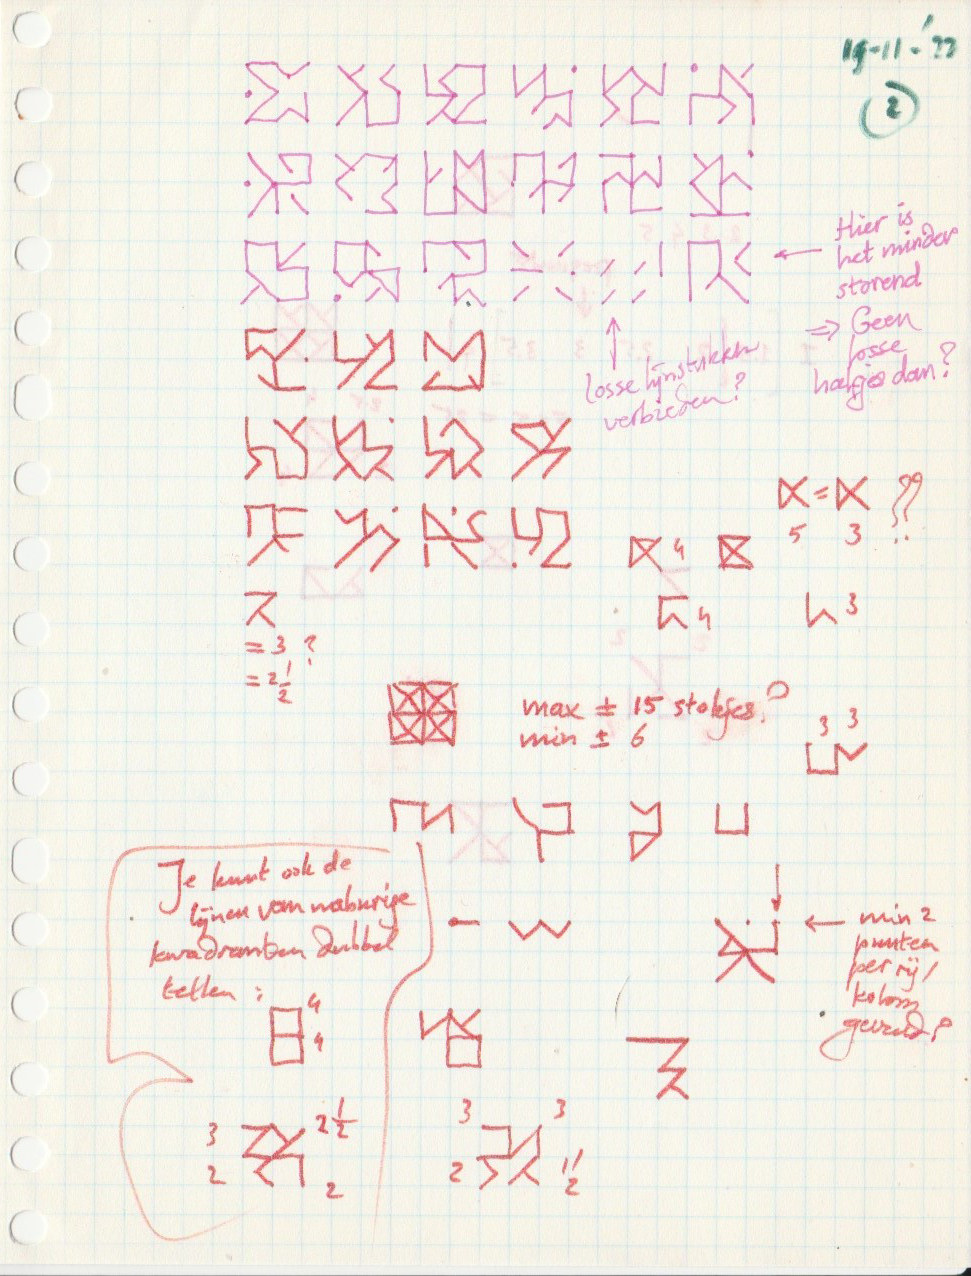 19-11-'22
2
Hier is
het minder
storend
=> Geen
losse
halfjes dan?
losse lijnstukken
verbieden?
= ??
5 3
4
4
3
= 3 ?
= 2 1/2
max ± 15 stokjes?
min ± 6
3 3
Je kunt ook de
lijnen van naburige
kwadranten dubbel
tellen :
4
4
min 2
punten
per rij/
kolom
gevuld?
3 2 1/2
2 2
3 3
2 1 1/2